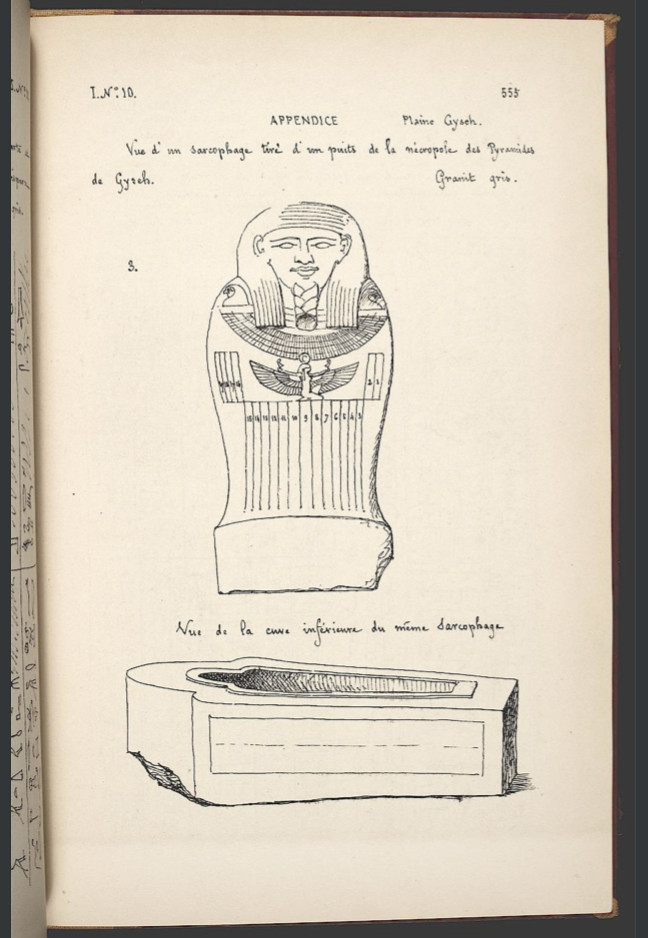 I. Nº 10.
555
APPENDICE
Plaine Gyseh.
Vue d'un sarcophage tiré d'un puits de la nécropole des Pyramides
de Gyseh.
Granit gris.
3.
2 1
11 10 9 8 7 6 5 4 3
Vue de la cuve inférieure du même Sarcophage